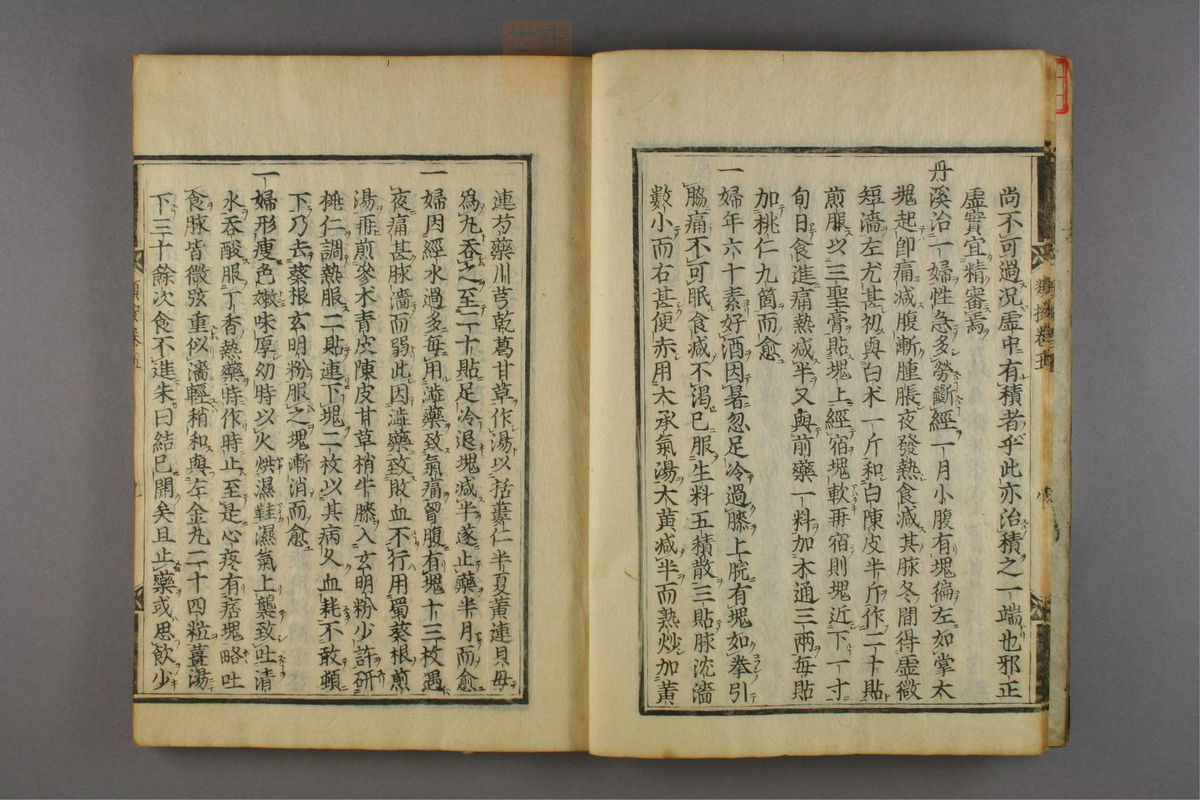 尚不可過況虚中有積者乎此亦治積之一端也邪正
虚實宜精審焉
丹溪治一婦性急多勞斷經一月小腹有塊偏左如掌大
塊起卽痛减腹漸腫脹夜發熱食减其脉冬間得虚微
短濇左尤甚初與白术一斤和白陳皮半斤作二十貼
煎服以三聖膏貼塊上經宿塊軟再宿則塊近下一寸
旬日食進痛熱减半又與前藥一料加木通三兩每貼
加桃仁九箇而愈
一婦年六十素好酒因暑忽足冷過膝上脘有塊如拳引
脇痛不可眠食减不渴已服生料五積散三貼脉沈濇
數小而右甚便赤用大承氣湯大黄减半而熟炒加黄
連芍藥川芎乾葛甘草作湯以括蔞仁半夏黄連貝母
爲丸吞之至二十貼足冷退塊减半遂止藥半月而愈
一婦因經水過多每用澁藥致氣痛胷腹有塊十三枚遇
夜痛甚脉濇而弱此因澁藥致敗血不行用蜀葵根煎
湯再煎參术青皮陳皮甘草梢牛膝入玄明粉少許研
桃仁調熱服二貼連下塊二枚以其病久血耗不敢頓
下乃去葵根玄明粉服之塊漸消而愈
一婦形瘦色嫩味厚幼時以火烘濕鞋濕氣上襲致吐清
水吞酸服丁香熱藥時作時止至是心疼有痞塊略吐
食脉皆微弦重似濇輕稍和與左金丸二十四粒薑湯
下三十餘次食不進朱曰結已開矣且止藥或思飲少